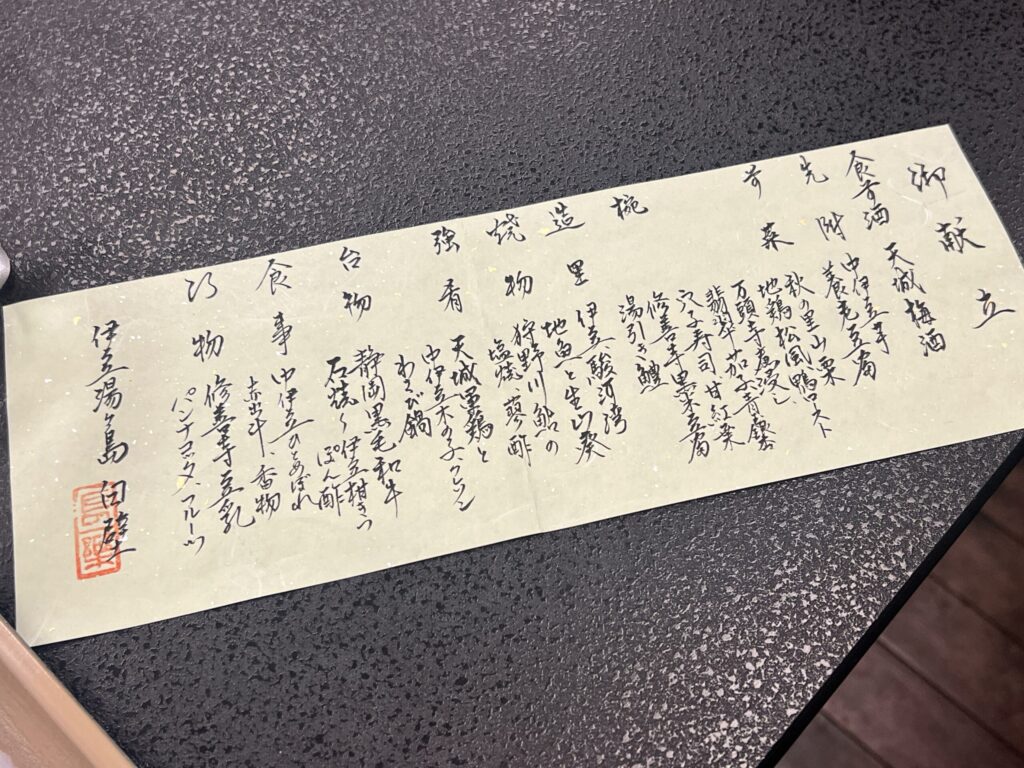 御献立
食前酒 天城梅酒
先附 中伊豆寺
養老豆腐
前菜 秋の里山栗
地鶏松風、鴨ロースト
万願寺唐浸し
翡翠茄子青露
穴子寿司 甘紅葉
椀 修善寺黒栗豆腐
湯引き鱧
造里 伊豆駿河湾
地魚と生山葵
焼物 狩野川鮎の
塩焼、蓼酢
強肴 天城軍鶏と
中伊豆木の子クレソン
わさび鍋
台物 静岡黒毛和牛
石焼〜伊豆橙ぽん酢
食事 中伊豆ひとめぼれ
赤出汁、香物
水物 修善寺豆乳
パンナコッタ、フルーツ
伊豆湯ヶ島 白壁